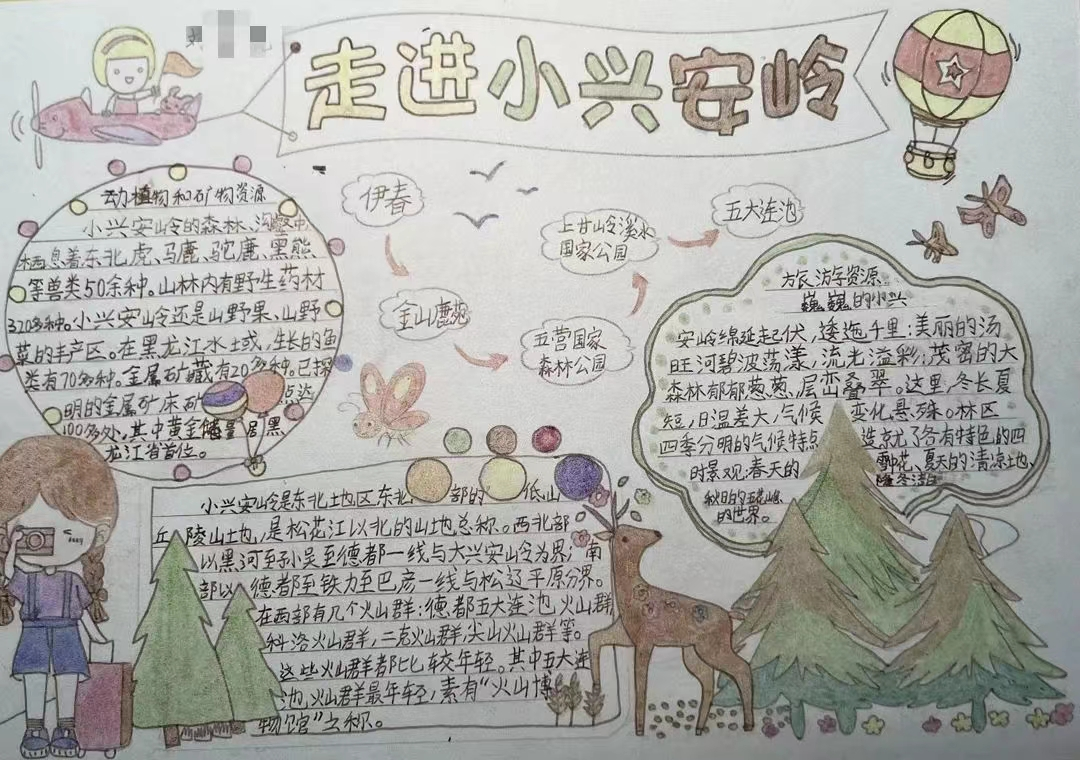 走进小兴安岭
动植物和矿物资源
小兴安岭的森林、沟壑中
栖息着东北虎、马鹿、驼鹿、黑熊
等兽类50余种。山林内有野生药材
320多种。小兴安岭还是山野果、山野
菜的丰产区。在黑龙江水域,生长的鱼
类有70多种。金属矿藏有20多种。已探
明的金属矿床矿点达
100多处,其中黄金储量居黑
龙江省首位。
伊春
金山鹿苑
五营国家
森林公园
上甘岭溪水
国家公园
五大连池
旅游资源
巍巍的小兴
安岭绵延起伏,逶迤千里:美丽的汤
旺河碧波荡漾,流光溢彩;茂密的大
森林郁郁葱葱,层峦叠翠。这里,冬长夏
短,日温差大,气候变化悬殊。林区
四季分明的气候特点造就了各有特色的四
时景观:春天的 花、夏天的清凉土地、
秋日的五花山、隆冬洁白
的世界。
小兴安岭是东北土地区东北部的低山
丘陵山土地,是松花江以北的山地总称。西北部
以黑河至孙吴至德都一线与大兴安岭为界;南
部以德都至铁力至巴彦一线与松辽平原分界。
在西部有几个火山群:德都五大连池火山群
科洛火山群,二克火山群,尖山火山群等。
这些火山群都比较年轻。其中五大连
池火山群最年轻,素有“火山博
物馆”之称。